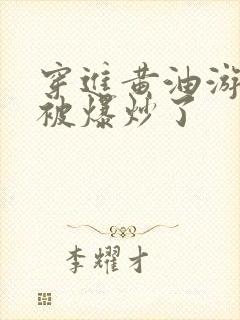 穿进黄油游
被爆炒了
李耀才